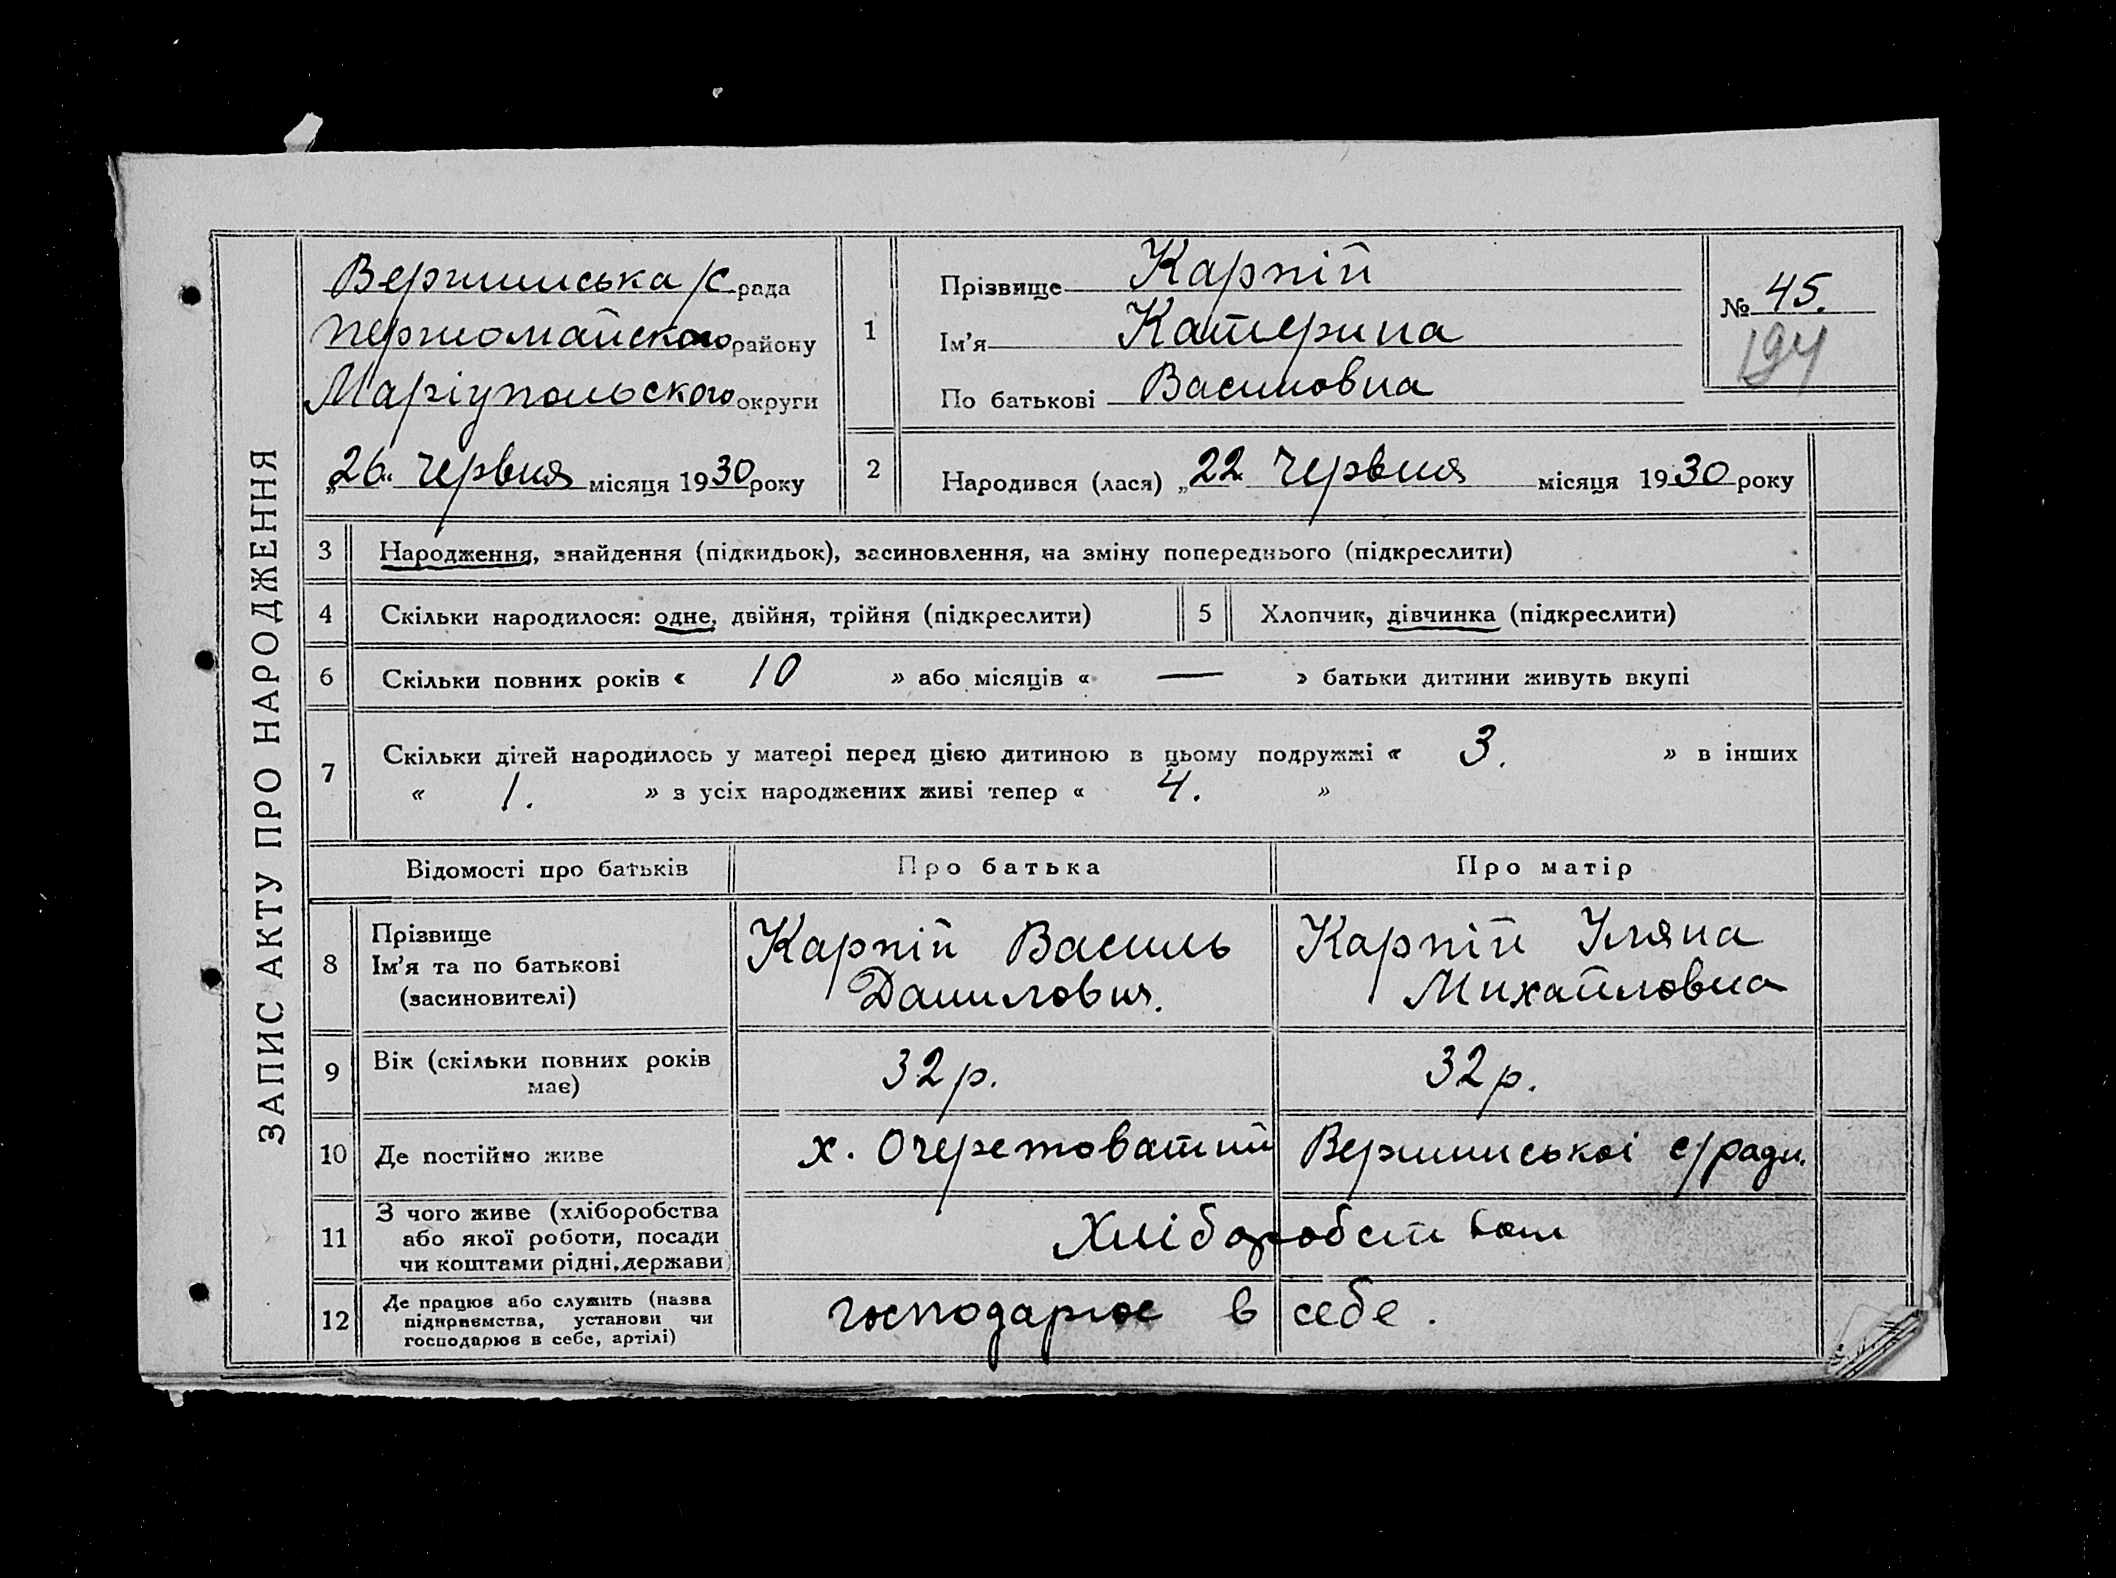 ЗАПИС АКТУ ПРО НАРОДЖЕННЯ
Вершинська /с рада
Першомайського району
Маріупольського округи
„26“ червня місяця 1930 року
1
Прізвище Карпій
Ім’я Катерина
По батькові Василовна
№ 45.
194
2
Народився (лася) „22 червня місяця 1930 року
3 Народження, знайдення (підкидьок), засиновлення, на зміну попереднього (підкреслити)
4 Скільки народилося: одне, двійня, трійня (підкреслити) 5 Хлопчик, дівчинка (підкреслити)
6 Скільки повних років « 10 » або місяців « — » батьки дитини живуть вкупі
7 Скільки дітей народилось у матері перед цією дитиною в цьому подружжі « 3. » в інших
« 1. » з усіх народжених живі тепер « 4. »
Відомості про батьків Про батька Про матір
8 Прізвище
Ім’я та по батькові
(засиновителі)
Карпій Василь
Данилович.
Карпій Уляна
Михайловна
9 Вік (скільки повних років
має)
32 р. 32 р.
10 Де постійно живе х. Очеретоватий Вершинської с/ради.
11 З чого живе (хліборобства
або якої роботи, посади
чи коштами рідні, держави)
Хліборобством
12 Де працює або служить (назва
підприємства, установи чи
господарює в себе, артілі)
господарює в себе.